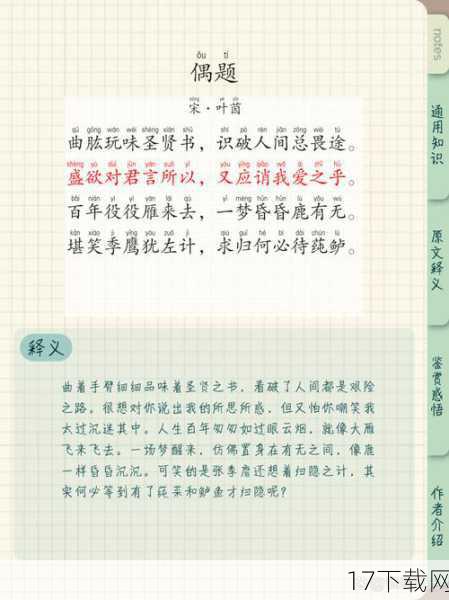 notes
ǒu tí
偶题
sòng yè yīn
宋·叶茵
qū gōng wán wèi shèng xián shū shí pò rén jiān zǒng wèi tú
曲肱玩味圣贤书，识破人间总畏途。
shèng yù duì jūn yán suǒ yǐ yòu yīng qiào wǒ ài zhī hū
盛欲对君言所以，又应诮我爱之乎。
bǎi nián yì yì yàn lái qù yī mèng hūn hūn lù yǒu wú
百年役役雁来去，一梦昏昏鹿有无。
kān xiào jì yīng yóu zuǒ jì qiú guī hé bì dài chún lú
堪笑季鹰犹左计，求归何必待莼鲈。
释义
曲着手臂细细品味着圣贤之书，看破了人间都是艰险
之路。很想对你说出我的所思所惑，但又怕你嘲笑我
太过沉迷其中。人生百年匆匆如过眼云烟，就像大雁
飞来飞去。一场梦醒来，仿佛置身在有无之间，像鹿
一样昏昏沉沉。可笑的是张季鹰还想着归隐之计，其
实何必等到有了莼菜和鲈鱼才归隐呢？
通用知识
原文释义
鉴赏感悟
作者介绍
17下载网